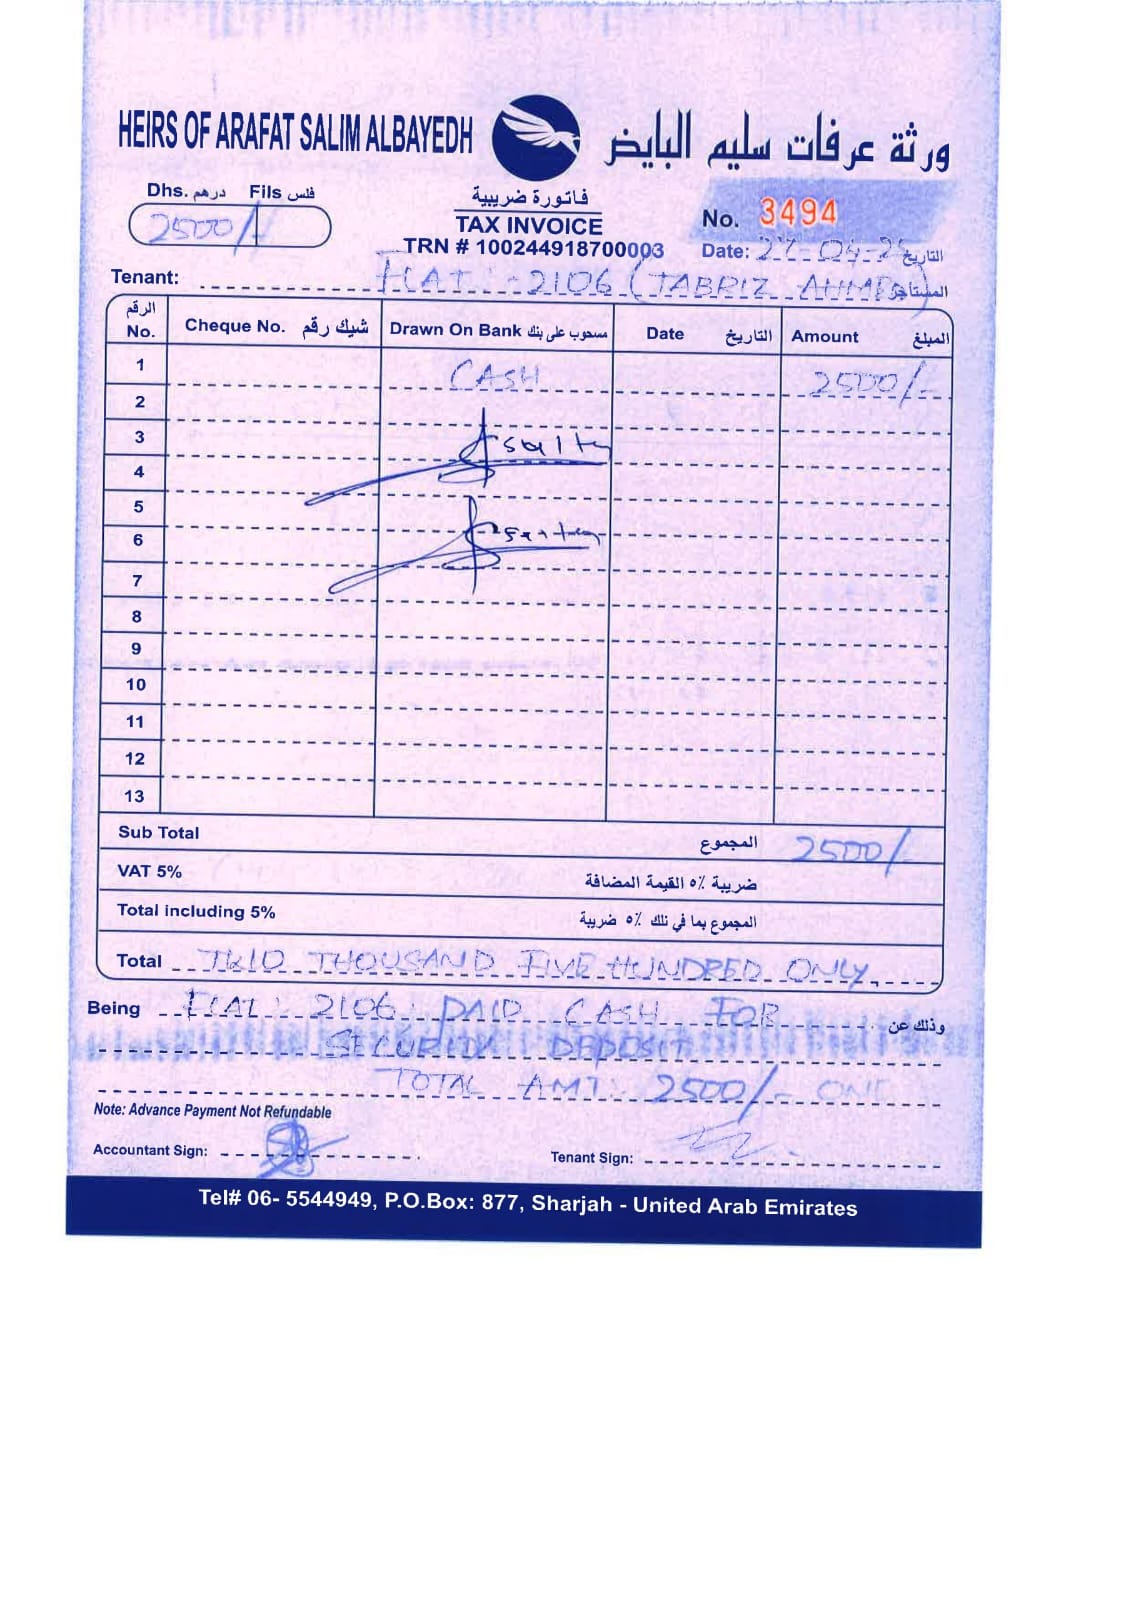 HEIRS OF ARAFAT SALIM ALBAYEDH
ورثة عرفات سليم البايض
Dhs. درهم Fils فلس
2500/-
فاتورة ضريبية
TAX INVOICE
TRN # 100244918700003
No. 3494
Date: التاريخ
Tenant: FLAT :- 2106 (TABRIZ AHMED) المستاجر
الرقم No. Cheque No. شيك رقم Drawn On Bank مسحوب على بنك Date التاريخ Amount المبلغ
1 CASH 2500/-
2
3
4
5
6
7
8
9
10
11
12
13
Sub Total المجموع 2500/-
VAT 5% ضريبة ٥٪ القيمة المضافة
Total including 5% المجموع بما في ذلك ٥٪ ضريبة
Total TWO THOUSAND FIVE HUNDRED ONLY.
Being FLAT: 2106 PAID CASH FOR وذلك عن
SECURITY DEPOSIT
TOTAL AMT: 2500/-
Note: Advance Payment Not Refundable
Accountant Sign:
Tenant Sign:
Tel# 06- 5544949, P.O.Box: 877, Sharjah - United Arab Emirates